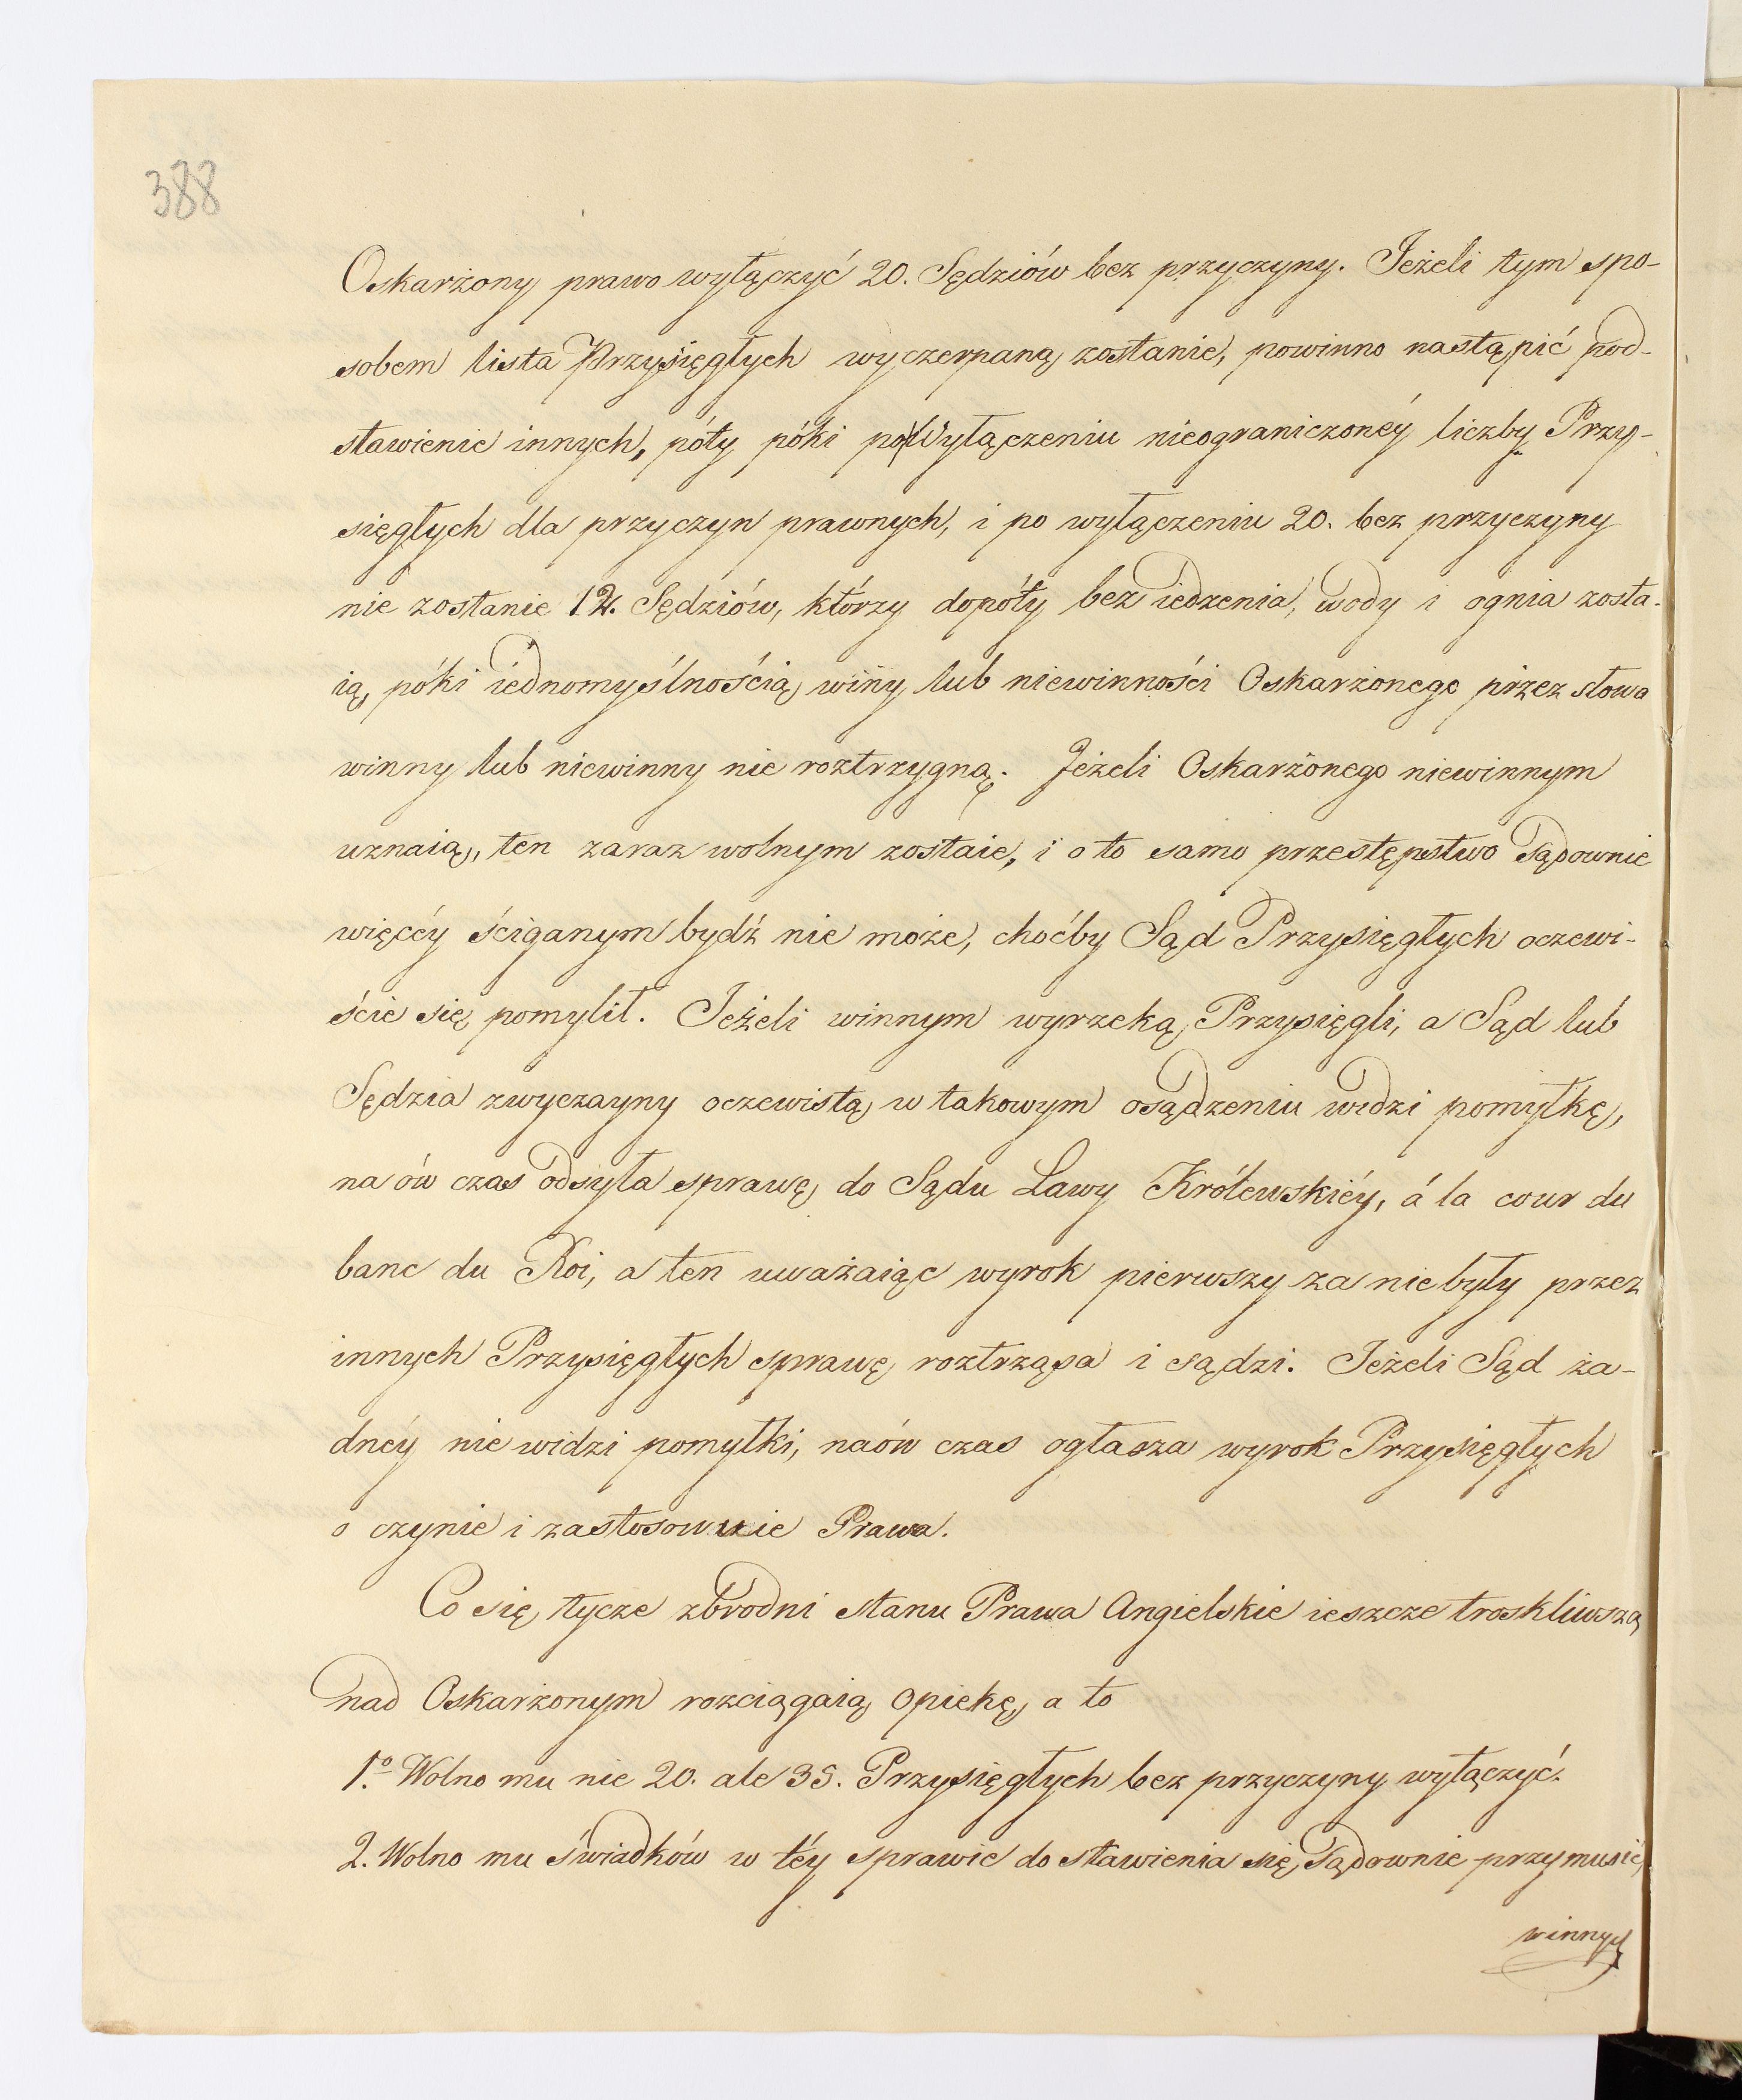 388
Oskarżony prawo wyłączyć 20. Sędziów bez przyczyny. Jeżeli tym spo-
sobem lista Przysięgłych wyczerpaną zostanie, powinno nastąpić pod-
stawienie innych, póty póki po wyłączeniu nieograniczonéy liczby Przy-
sięgłych dla przyczyn prawnych, i po wyłączeniu 20. bez przyczyny
nie zostanie 12. Sędziów, którzy dopóty bez iedzenia, wody i ognia zosta-
ią, póki iednomyślnością winy lub niewinności Oskarżonego przez słowa
winny lub niewinny nie roztrzygną. Jeżeli Oskarżonego niewinnym
uznaią, ten zaraz wolnym zostaie, i o to samo przestępstwo Sądownie
więcéy ściganym bydź nie może, choćby Sąd Przysięgłych oczewi-
ście się pomylił. Jeżeli winnym wyrzeką Przysięgli, a Sąd lub
Sędzia zwyczayny oczewistą w takowym osądzeniu widzi pomyłkę,
na ów czas odsyła sprawę do Sądu Ławy Królewskiéy, á la cour du
banc du Roi, a ten uważaiąc wyrok pierwszy za niebyły przez
innych Przysięgłych sprawę roztrząsa i sądzi. Jeżeli Sąd ża-
dnéy nie widzi pomyłki, naów czas ogłasza wyrok Przysięgłych
o czynie i zastosowuie Prawa.
Co się tycze zbrodni stanu Prawa Angielskie ieszcze troskliwszą
nad Oskarżonym rozciągaią opiekę, a to
1.º Wolno mu nie 20. ale 35. Przysięgłych bez przyczyny wyłączyć.
2. Wolno mu świadków w téy sprawie do stawienia się Sądownie przymusić,
winny